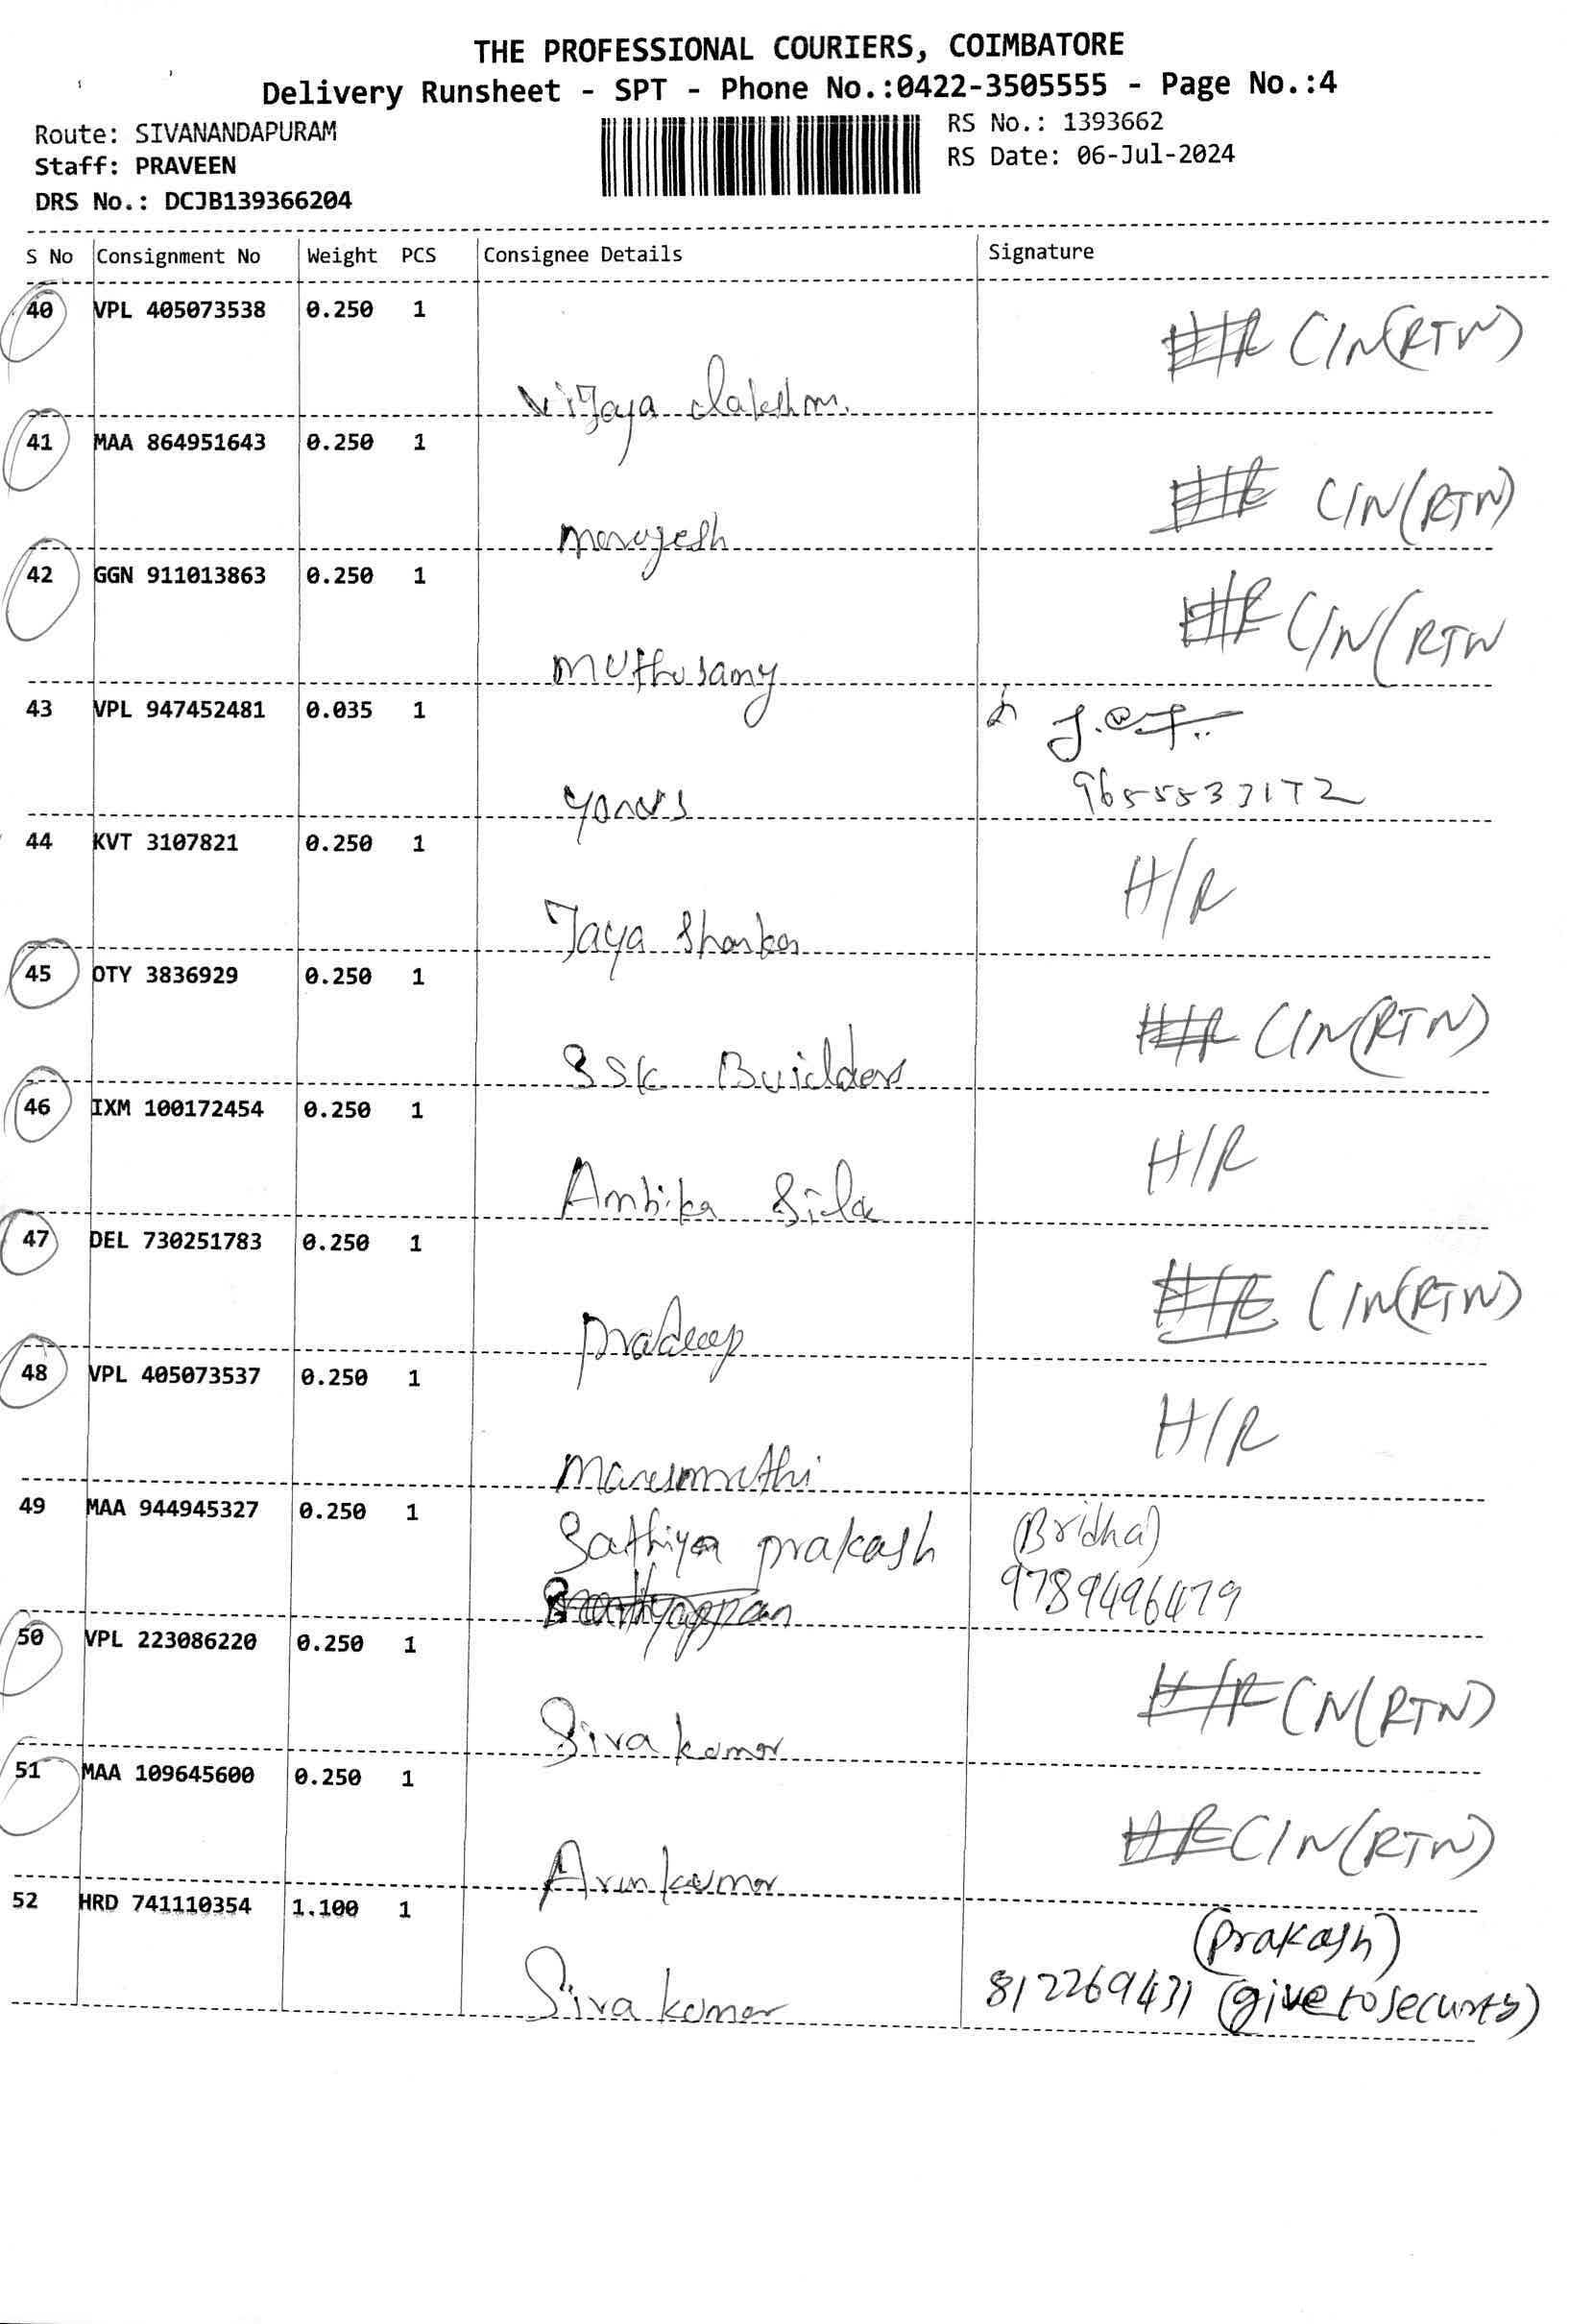 THE PROFESSIONAL COURIERS, COIMBATORE
Delivery Runsheet - SPT - Phone No.:0422-3505555 - Page No.:4
Route: SIVANANDAPURAM
RS No.: 1393662
Staff: PRAVEEN
RS Date: 06-Jul-2024
DRS No.: DCJB139366204
S No Consignment No Weight PCS Consignee Details Signature
40 VPL 405073538 0.250 1
C/N(RTN)
Vijaya
41 MAA 864951643 0.250 1
C/N(RTN)
42 GGN 911013863 0.250 1
C/N(RTN
Muthusamy
43 VPL 947452481 0.035 1
44 KVT 3107821 0.250 1
H/R
Jaya
45 OTY 3836929 0.250 1
C/N(RTN)
SSK Builders
46 IXM 100172454 0.250 1
H/R
Ambika
47 DEL 730251783 0.250 1
C/N(RTN)
Pradeep
48 VPL 405073537 0.250 1
H/R
49 MAA 944945327 0.250 1
Sathiya prakash (Bridha)
9789496479
50 VPL 223086220 0.250 1
C/N(RTN)
Sivakumar
51 MAA 109645600 0.250 1
C/N(RTN)
Arunkumar
52 HRD 741110354 1.100 1
(Prakash)
Sivakumar 812269431 (give to security)